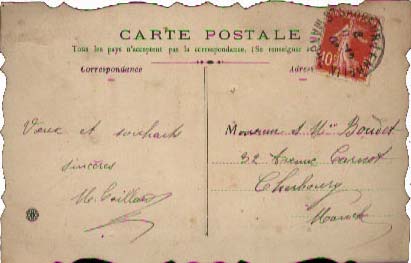 CARTE POSTALE
Tous les pays n'acceptent pas la correspondance. (Se renseigner
Correspondance
Adres
10
Vœux et souhaits
sincères
Monsieur & Mme Boudet
32 Avenue Carnot
Cherbourg
Manche